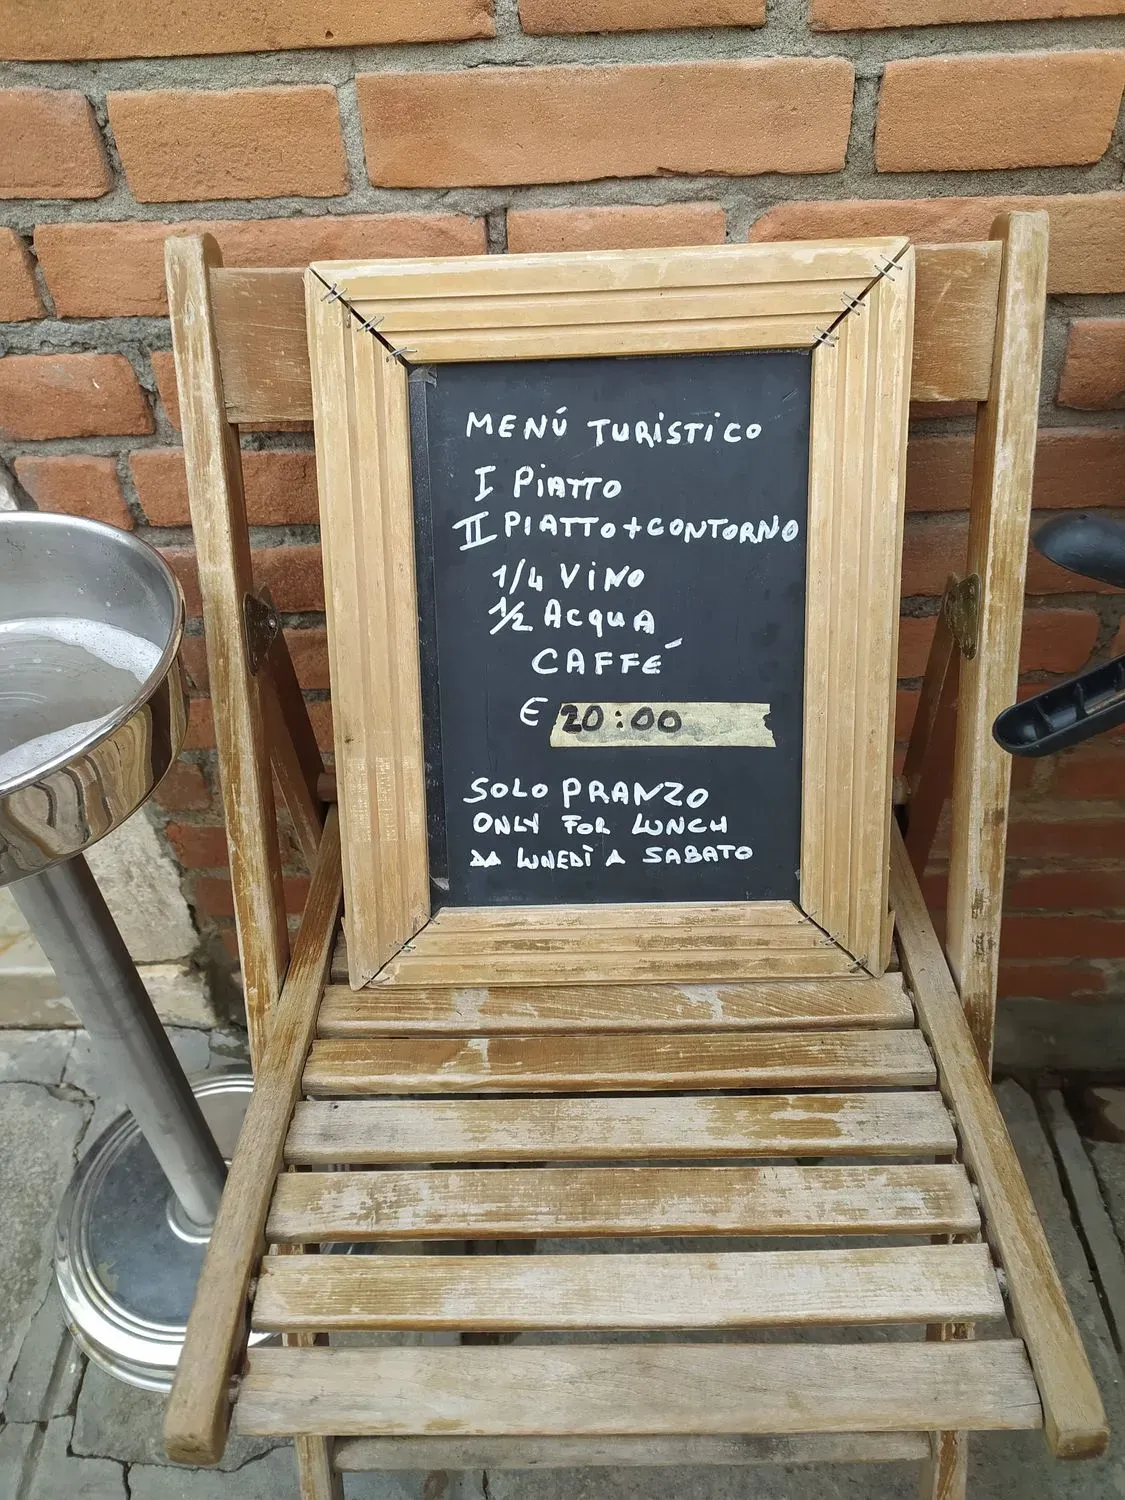 MENÚ TURISTICO
I PIATTO
II PIATTO+CONTORNO
1/4 VINO
1/2 ACQUA
CAFFÉ
€ 20:00
SOLO PRANZO
ONLY FOR LUNCH
DA LUNEDÌ A SABATO